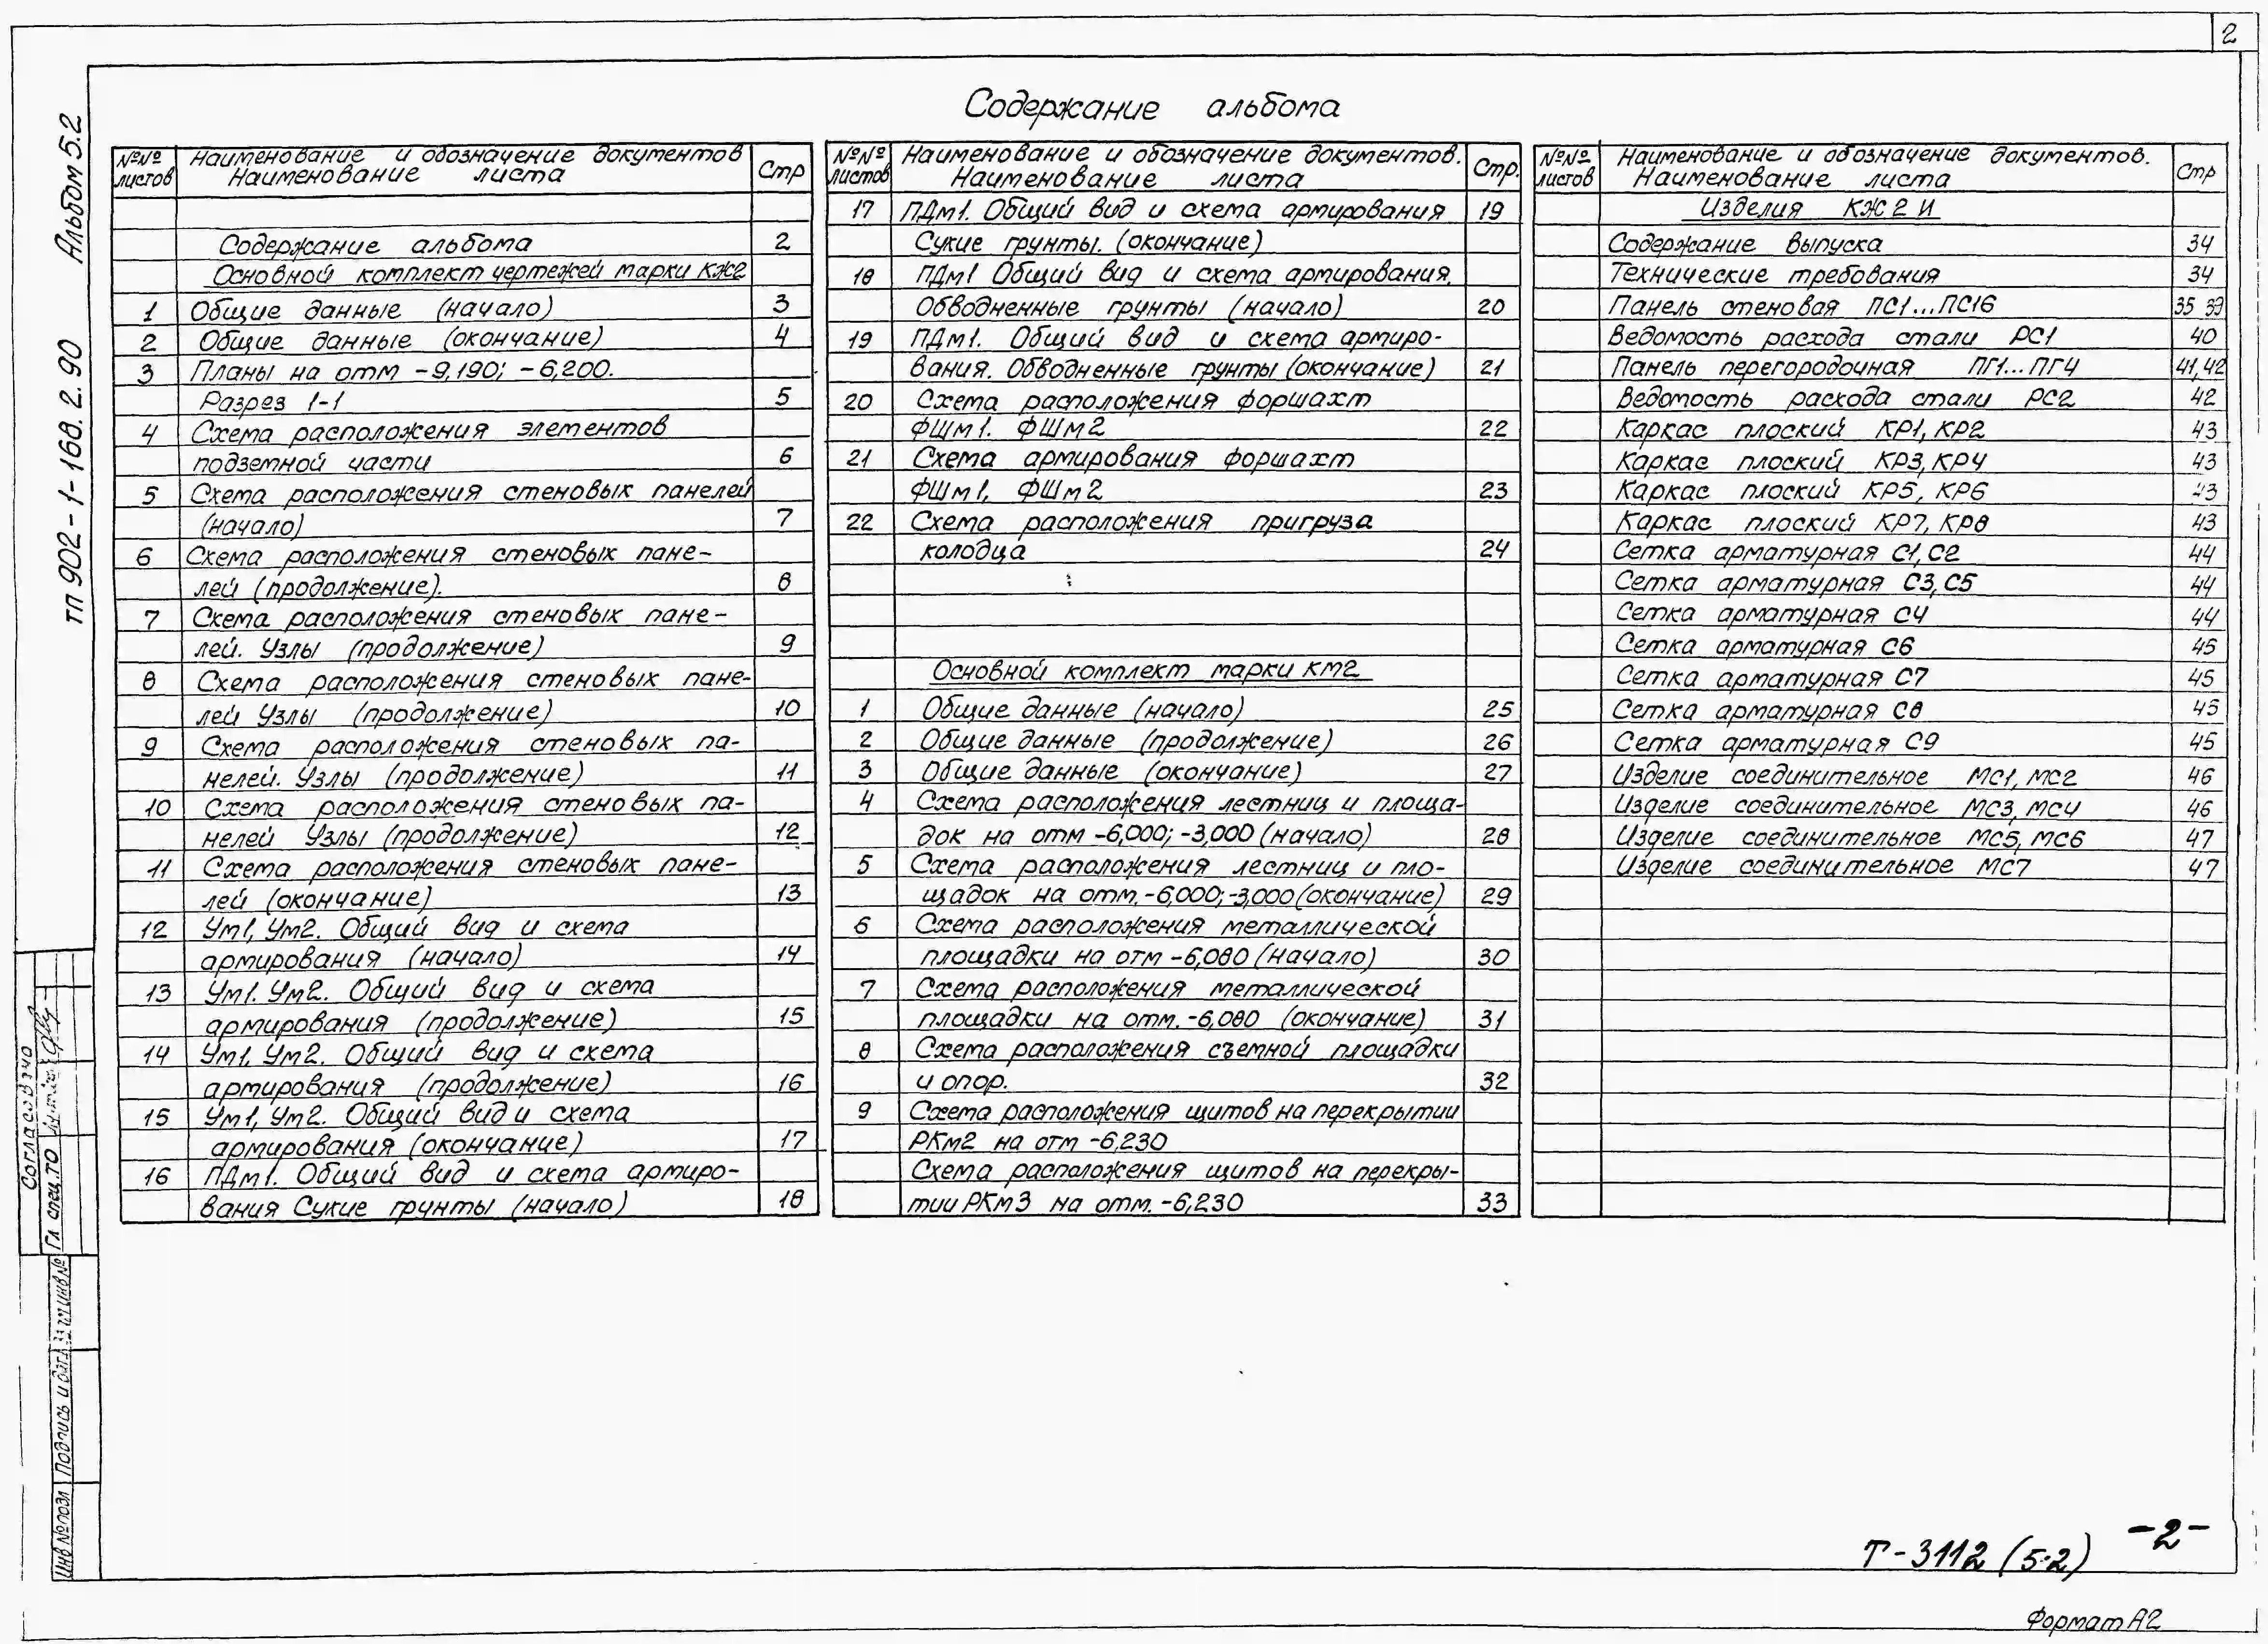 2
Содержание альбома
тп 902-1-168.2.90 Альбом 5.2
№№ листов
Наименование и обозначение документов
Наименование листа
Стр
Содержание альбома 2
Основной комплект чертежей марки КЖ2
1 Общие данные (начало) 3
2 Общие данные (окончание) 4
3 Планы на отм -9,190; -6,200.
Разрез 1-1 5
4 Схема расположения элементов
подземной части 6
5 Схема расположения стеновых панелей
(начало) 7
6 Схема расположения стеновых пане-
лей (продолжение). 8
7 Схема расположения стеновых пане-
лей. Узлы (продолжение) 9
8 Схема расположения стеновых пане-
лей Узлы (продолжение) 10
9 Схема расположения стеновых па-
нелей. Узлы (продолжение) 11
10 Схема расположения стеновых па-
нелей Узлы (продолжение) 12
11 Схема расположения стеновых пане-
лей (окончание) 13
12 Ум1, Ум2. Общий вид и схема
армирования (начало) 14
13 Ум1. Ум2. Общий вид и схема
армирования (продолжение) 15
14 Ум1, Ум2. Общий вид и схема
армирования (продолжение) 16
15 Ум1, Ум2. Общий вид и схема
армирования (окончание) 17
16 ПДм1. Общий вид и схема армиро-
вания Сухие грунты (начало) 18
№№ листов
Наименование и обозначение документов.
Наименование листа
Стр.
17 ПДм1. Общий вид и схема армирования 19
Сухие грунты. (окончание)
18 ПДм1 Общий вид и схема армирования.
Обводненные грунты (начало) 20
19 ПДм1. Общий вид и схема армиро-
вания. Обводненные грунты (окончание) 21
20 Схема расположения форшахт
ФШм1. ФШм2 22
21 Схема армирования форшахт
ФШм1, ФШм2 23
22 Схема расположения пригруза
колодца 24
Основной комплект марки КМ2
1 Общие данные (начало) 25
2 Общие данные (продолжение) 26
3 Общие данные (окончание) 27
4 Схема расположения лестниц и площа-
док на отм -6,000; -3,000 (начало) 28
5 Схема расположения лестниц и пло-
щадок на отм. -6,000; -3,000 (окончание) 29
6 Схема расположения металлической
площадки на отм -6,080 (начало) 30
7 Схема расположения металлической
площадки на отм. -6,080 (окончание) 31
8 Схема расположения съемной площадки
и опор. 32
9 Схема расположения щитов на перекрытии
РКм2 на отм -6,230
Схема расположения щитов на перекры-
тии РКм3 на отм. -6,230 33
№№ листов
Наименование и обозначение документов.
Наименование листа
Стр
Изделия КЖ2И
Содержание выпуска 34
Технические требования 34
Панель стеновая ПС1...ПС16 35 39
Ведомость расхода стали РС1 40
Панель перегородочная ПГ1...ПГ4 41,42
Ведомость расхода стали РС2 42
Каркас плоский КР1, КР2 43
Каркас плоский КР3, КР4 43
Каркас плоский КР5, КР6 43
Каркас плоский КР7, КР8 43
Сетка арматурная С1, С2 44
Сетка арматурная С3, С5 44
Сетка арматурная С4 44
Сетка арматурная С6 45
Сетка арматурная С7 45
Сетка арматурная С8 45
Сетка арматурная С9 45
Изделие соединительное МС1, МС2 46
Изделие соединительное МС3, МС4 46
Изделие соединительное МС5, МС6 47
Изделие соединительное МС7 47
Согласовано
Гл спец. ТО
Инв № подл Подпись и дата
инв №
Т-3112 (5.2) -2-
Формат А2